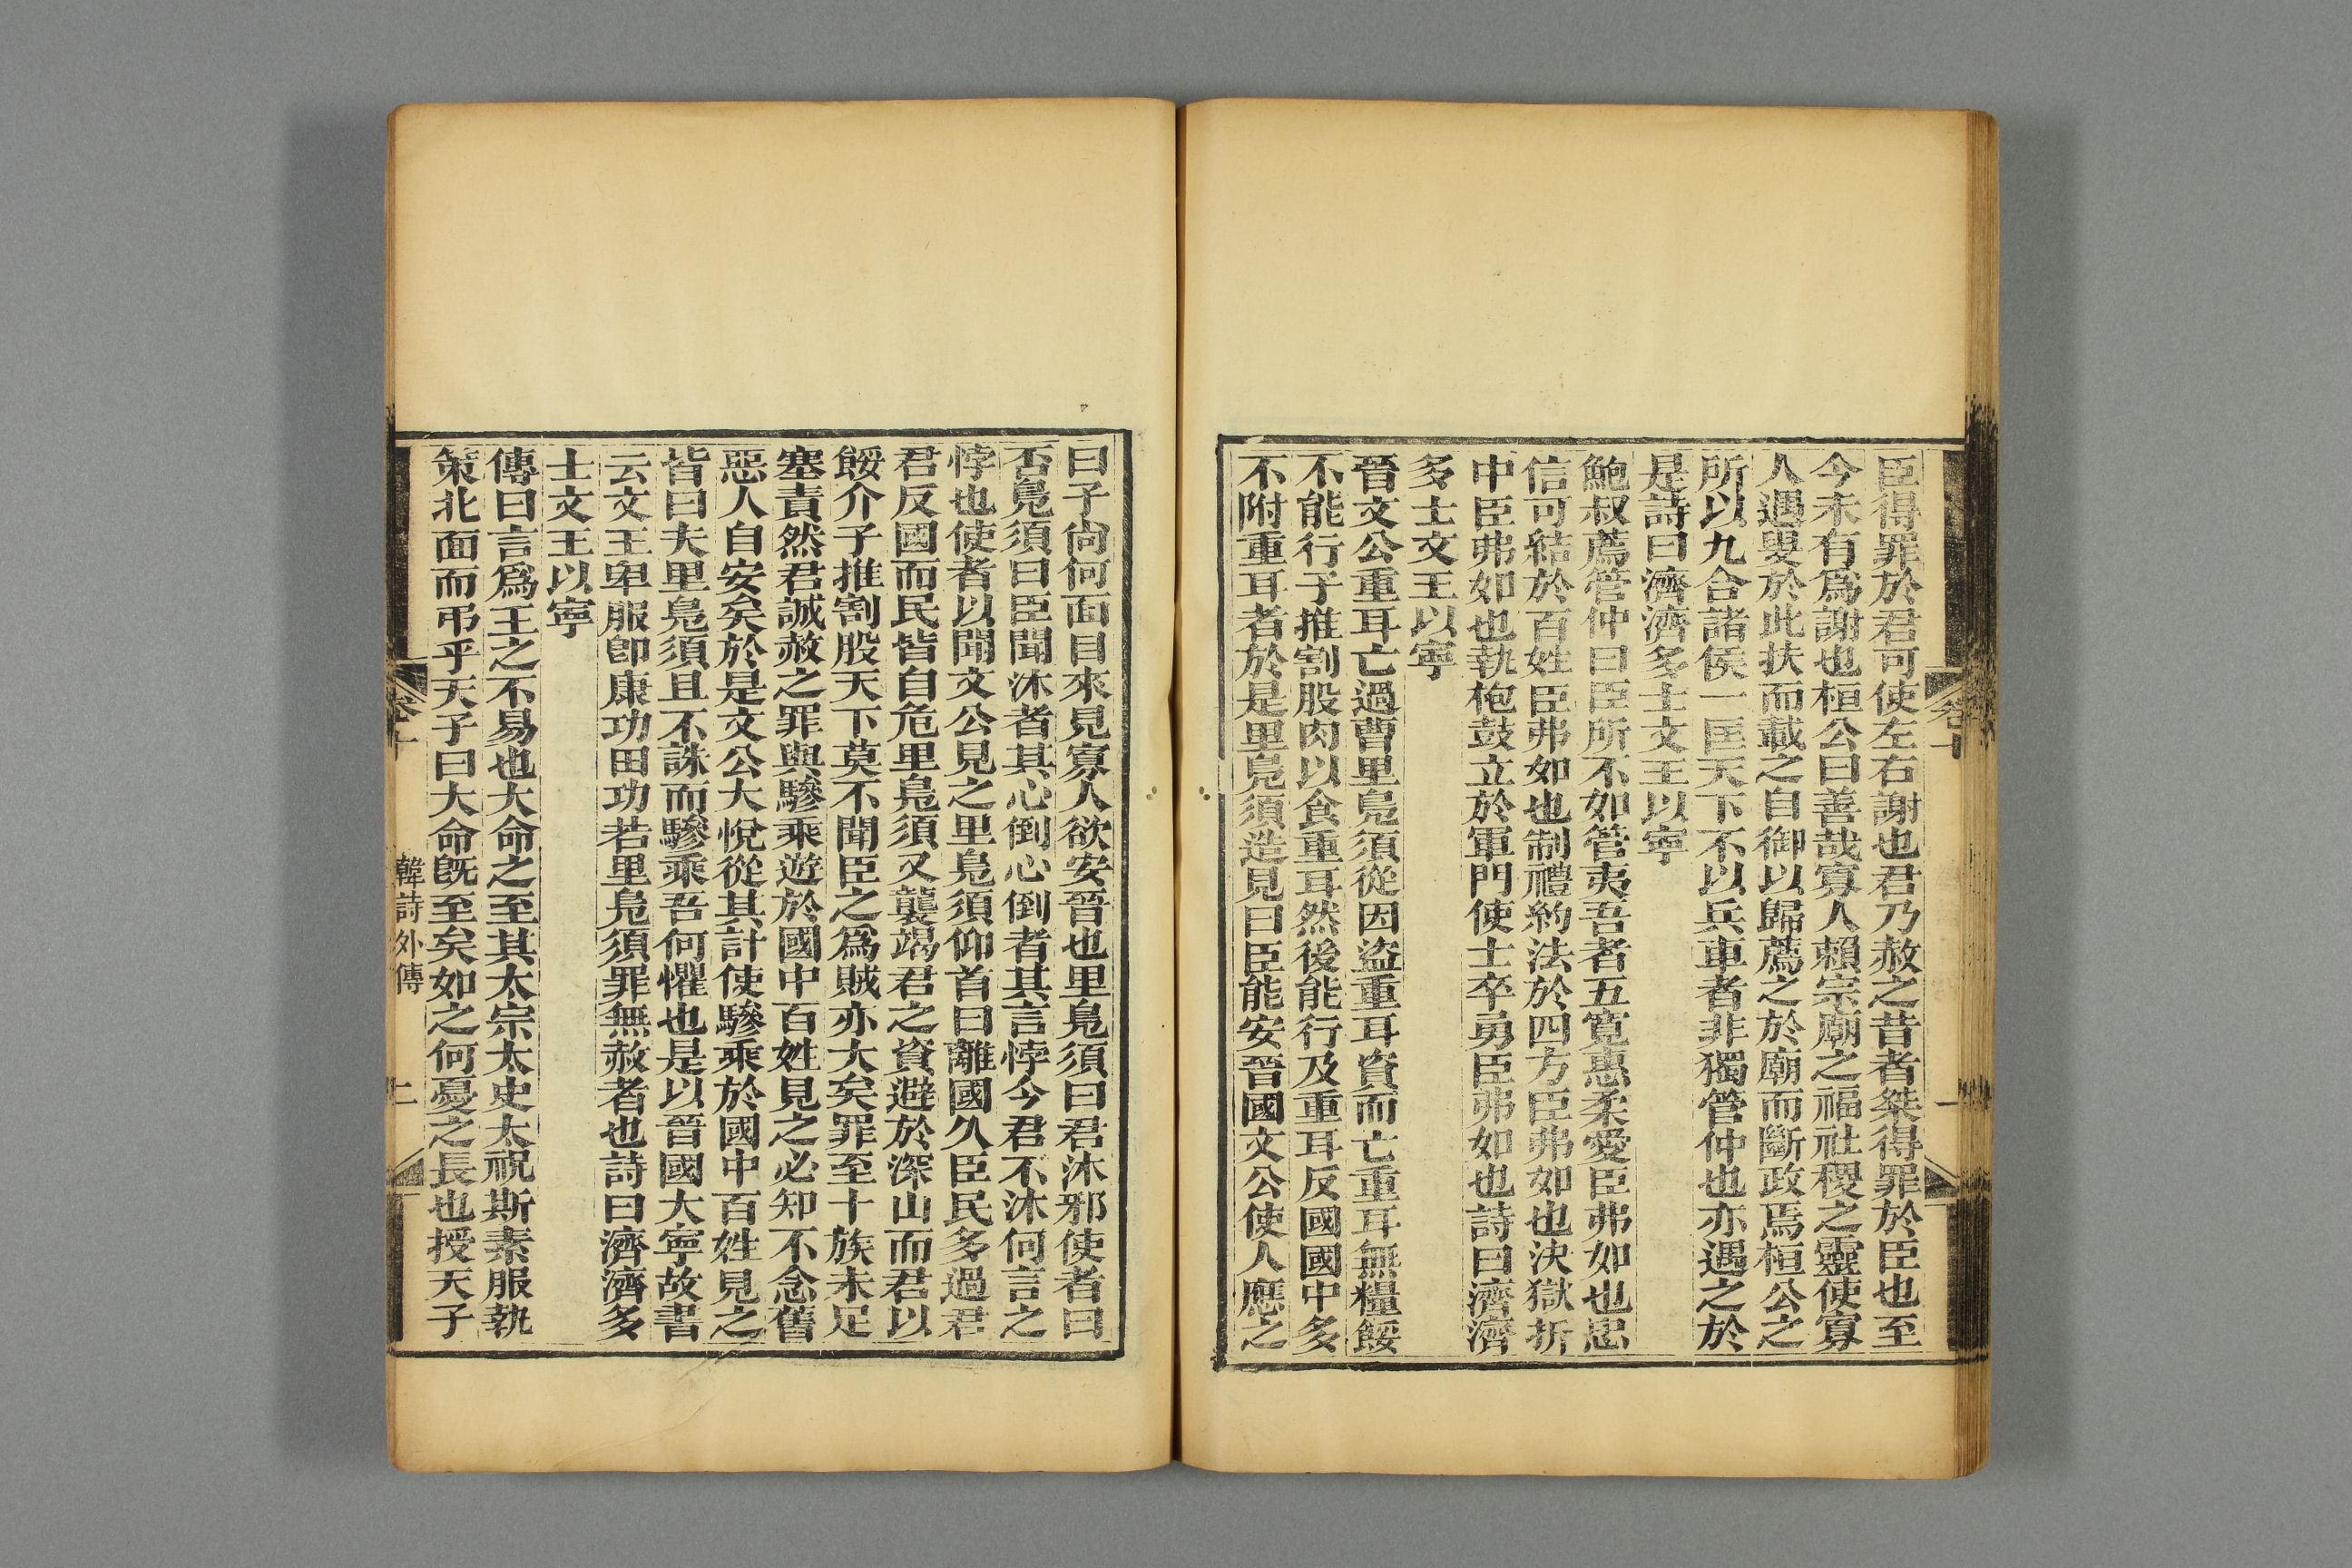 臣得罪於君可使左右謝也君乃赦之昔者桀得罪於臣也至
今未有爲謝也桓公曰善哉寡人賴宗廟之福社稷之靈使寡
人遇叟於此扶而載之自御以歸薦之於廟而斷政焉桓公之
所以九合諸侯一匡天下不以兵車者非獨管仲也亦遇之於
是詩曰濟濟多士文王以寧
鮑叔薦管仲曰臣所不如管夷吾者五寬惠柔愛臣弗如也忠
信可結於百姓臣弗如也制禮約法於四方臣弗如也決獄折
中臣弗如也執枹鼓立於軍門使士卒勇臣弗如也詩曰濟濟
多士文王以寧
晉文公重耳亡過曹里鳧須從因盜重耳資而亡重耳無糧餒
不能行子推割股肉以食重耳然後能行及重耳反國國中多
不附重耳者於是里鳧須造見曰臣能安晉國文公使人應之
卷十
一
曰子尙何面目來見寡人欲安晉也里鳧須曰君沐邪使者曰
否鳧須曰臣聞沐者其心倒心倒者其言悖今君不沐何言之
悖也使者以聞文公見之里鳧須仰首曰離國久臣民多過君
君反國而民皆自危里鳧須又襲竭君之資避於深山而君以
餒介子推割股天下莫不聞臣之爲賊亦大矣罪至十族未足
塞責然君誠赦之罪與驂乘遊於國中百姓見之必知不念舊
惡人自安矣於是文公大悅從其計使驂乘於國中百姓見之
皆曰夫里鳧須且不誅而驂乘吾何懼也是以晉國大寧故書
云文王卑服卽康功田功若里鳧須罪無赦者也詩曰濟濟多
士文王以寧
傳曰言爲王之不易也大命之至其太宗太史太祝斯素服執
策北面而弔乎天子曰大命旣至矣如之何憂之長也授天子
卷十
韓詩外傳
二